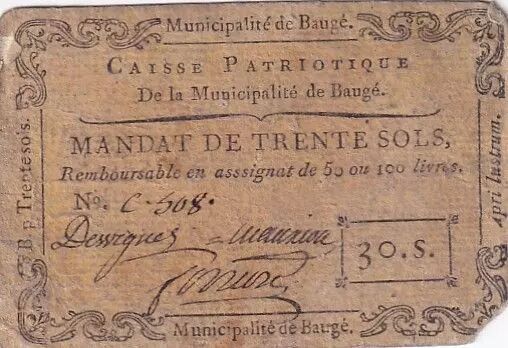 Municipalité de Baugé.
CAISSE PATRIOTIQUE
De la Municipalité de Baugé.
MANDAT DE TRENTE SOLS,
Remboursable en asssignat de 50 ou 100 livres.
No. C. 508.
30.S.
Municipalité de Baugé.
B. p Trente sols.
Apri lustrum.